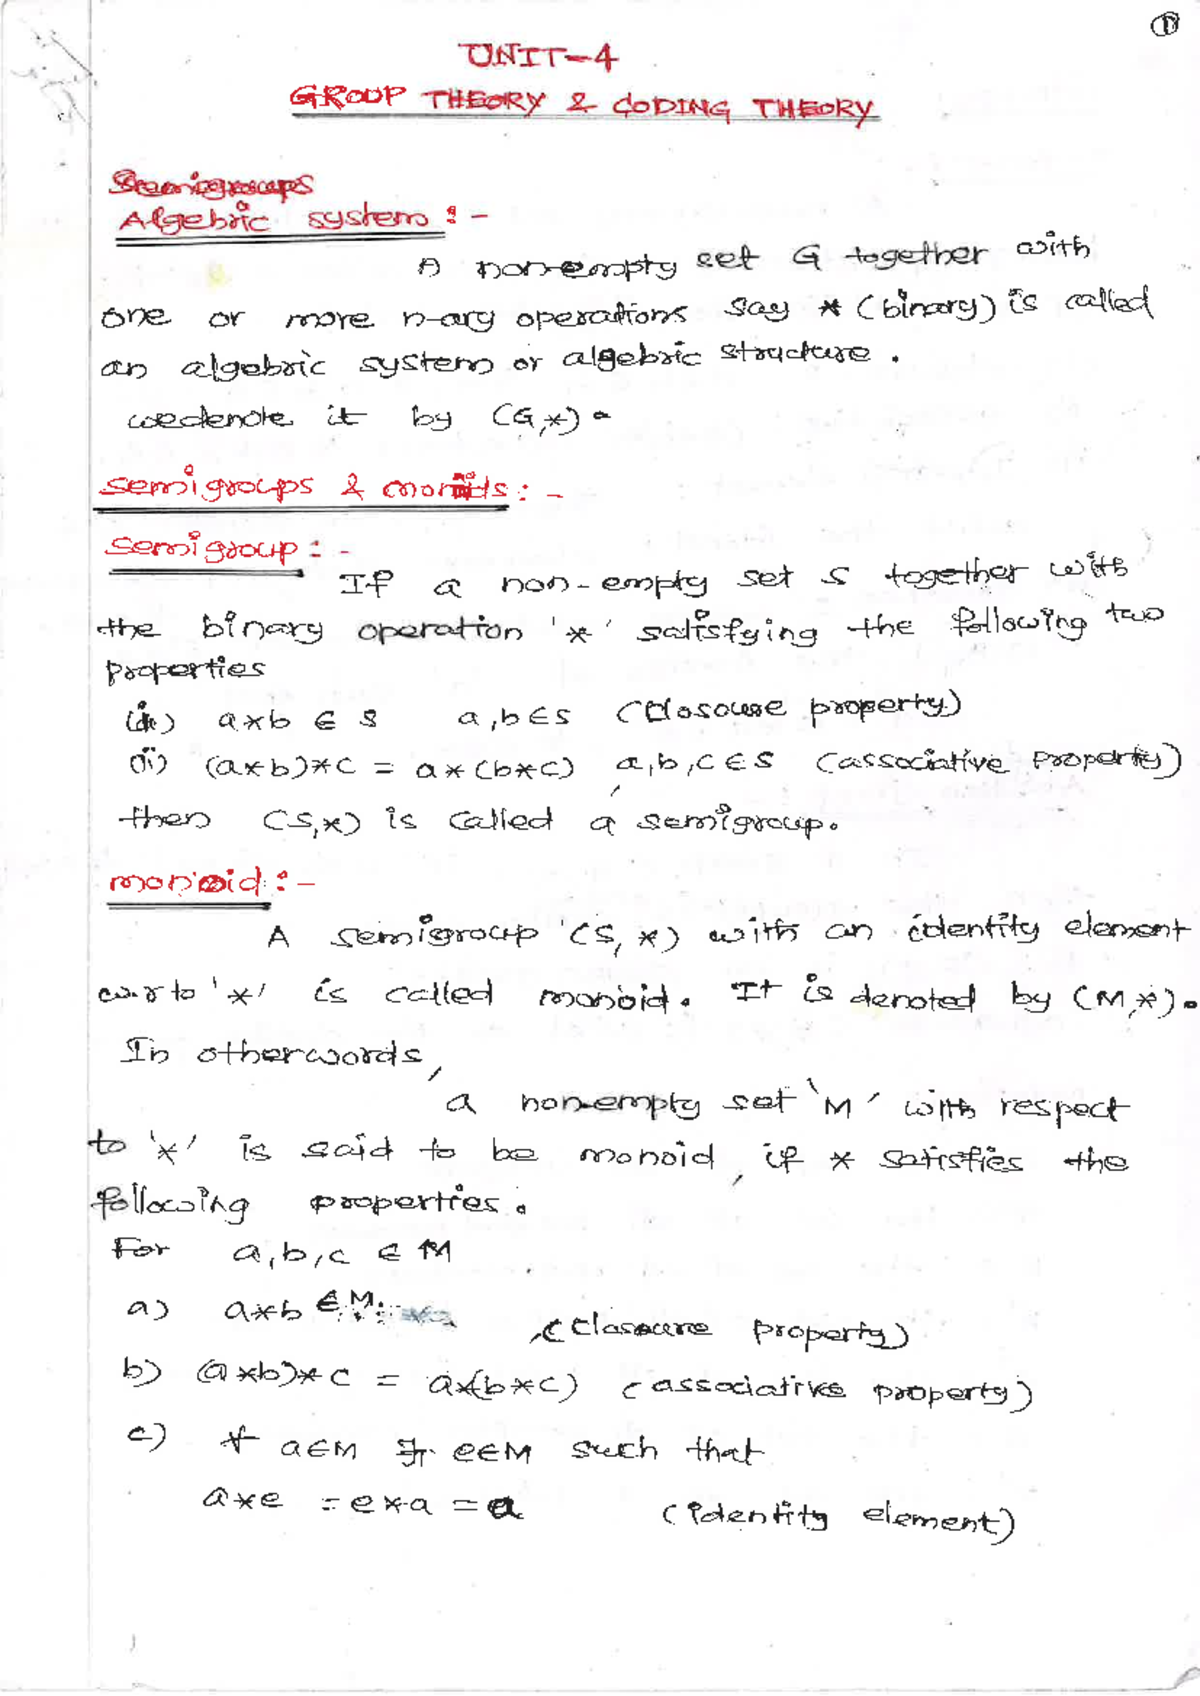 1
UNIT-4
GROUP THEORY & CODING THEORY
Semigroups
Algebric system :-
A non-empty set G together with
one or more n-ary operations say * (binary) is called
an algebric system or algebric structure.
we denote it by (G,*).
semigroups & monoids:-
semigroup:-
If a non-empty set S together with
the binary operation '*' satisfying the following two
properties
(i) a*b ∈ S a,b∈S (Closoure property)
(ii) (a*b)*c = a*(b*c) a,b,c∈S (associative property)
then (S,*) is called a semigroup.
monoid:-
A semigroup (S,*) with an identity element
w.r to '*' is called monoid. It is denoted by (M,*).
In otherwords,
a non-empty set 'M' with respect
to '*' is said to be monoid, if * satisfies the
following properties.
For a,b,c ∈ M
a) a*b ∈ M. (Clasoure property)
b) (a*b)*c = a*(b*c) (associative property)
c) ∀ a∈M ∃ e∈M such that
a*e = e*a = a (identity element)